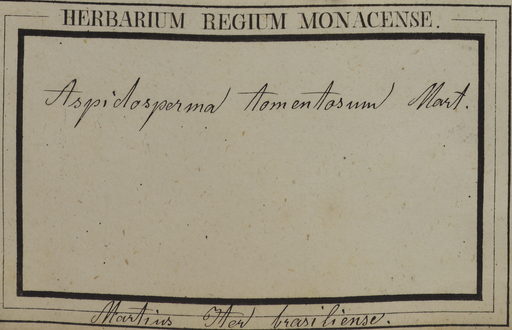 HERBARIUM REGIUM MONACENSE.
Aspidosperma tomentosum Mart.
Martius Iter brasiliense.